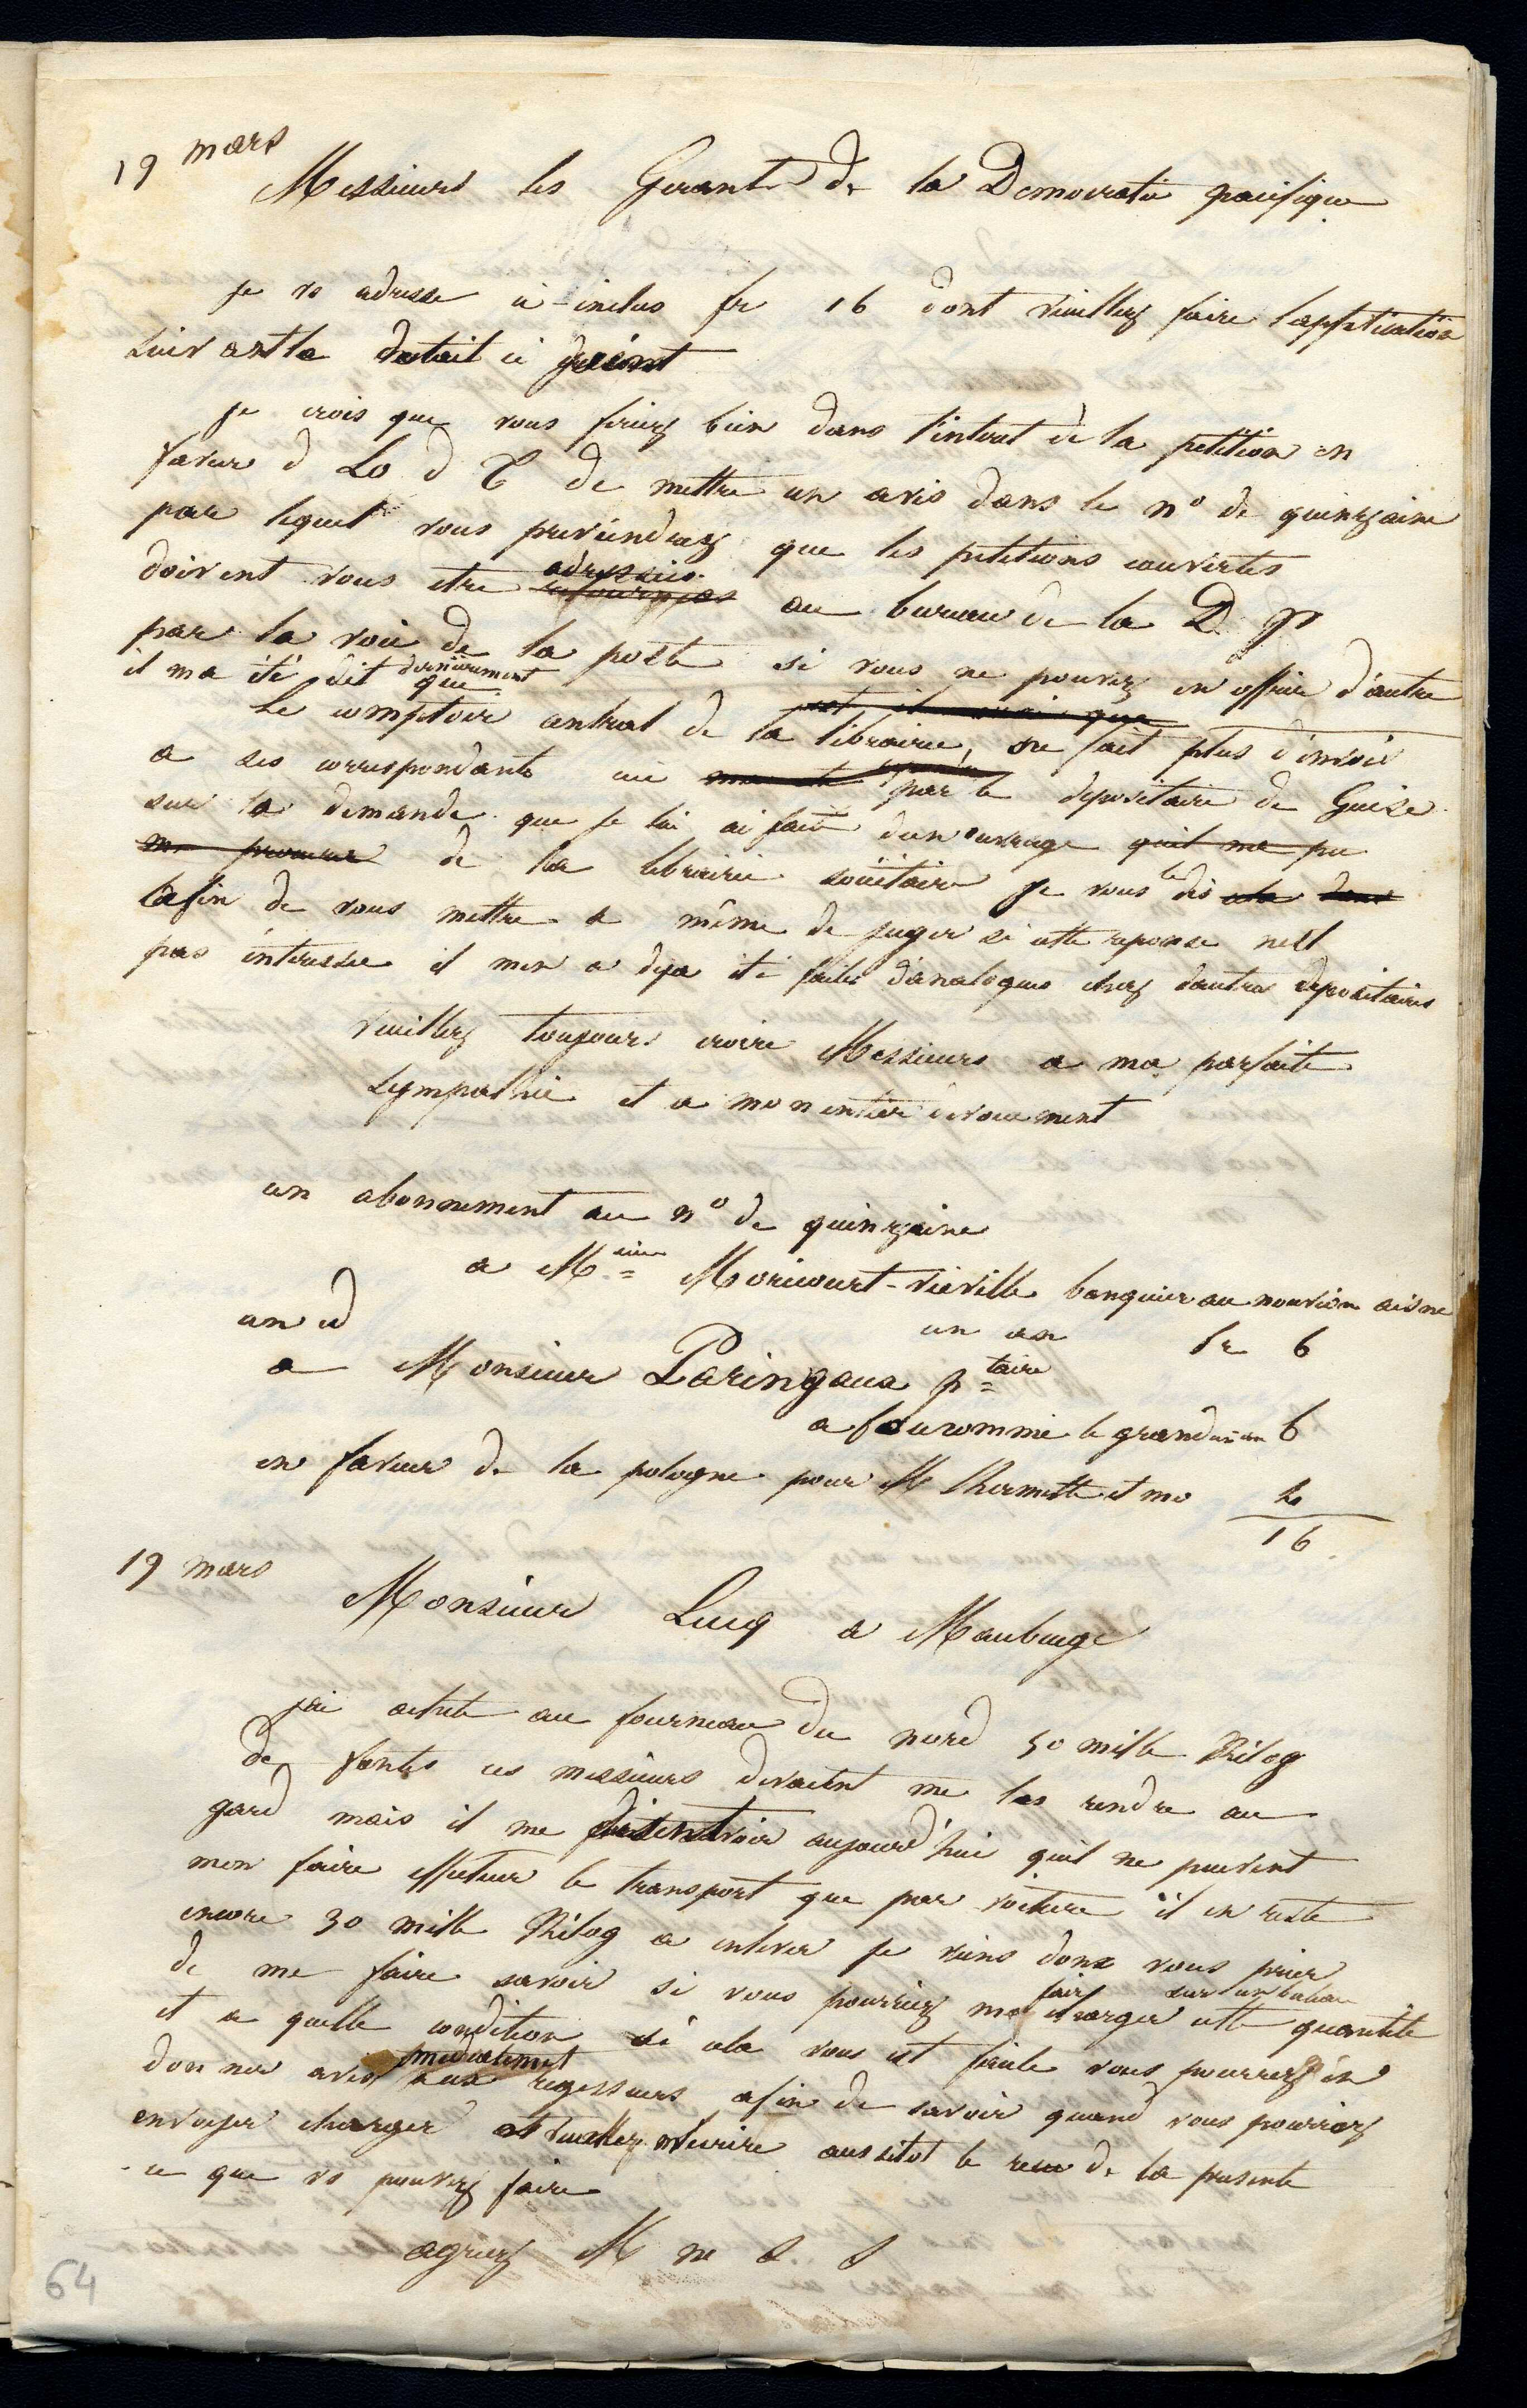 19 mars
Messieurs les Gerants de la Democratie pacifique
je vs adresse ci-inclus fr 16 dont veuillez faire lapplication
suivant le detail ci joint
je crois que vous feriez bien dans l'interet de la petition en
faveur d Lo d T de mettre un avis dans le n° de quinzaine
par lequel vous previendrez que les petitions couvertes
adressées
doivent vous etre au bureau de la D. P
par la voie de la poste si vous ne pouvez en offrir d'autre
il ma été dit dernièrement que
est il vrai que
Le comptoir central de la librairie, ne fait plus d'envoie
a ses correspondants ici par le depositaire de Guise
sur la demande que je lui ai fait dun ouvrage quil me pu
me procurer de la librairie sociétaire je vous le dis cela dans
lafin de vous mettre a même de juger si cette reponse nest
pas interessée il men a deja été faites d'analogues chez dautres depositaires
veuillez toujours croire Messieurs a ma parfaite
sympathie et a mon entier devouement
un abonnement au n° de quinzaine
a M Moricourt-vieville banquier au nouvion aisne
un an fr 6
un id
a Monsieur Paringaux ptaire
a le grand un an 6
en faveur de la pologne pour M Lhermitte et moi 4
16
19 mars
Monsieur Lucq a Maubeuge
jai acheté au fourneau du nord 50 mille Kilog
de fontes ces messieurs devaient me les rendre au
gard mais il me aujourd'hui quil ne peuvent
men faire effectuer le transport que par voiture il en reste
encore 30 mille Kilog a enlever je viens donc vous prier
faire sur un bateau
de me faire savoir si vous pourriez me charger cette quantité
et a quelle condition si cela vous est facile vous pourrez en
donner avis aux regisseurs afin de savoir quand vous pourriez
envoyer charger et veuillez mécrire aussitot le recu de la presente
ce que vs pouvez faire
agréez M me S S
64